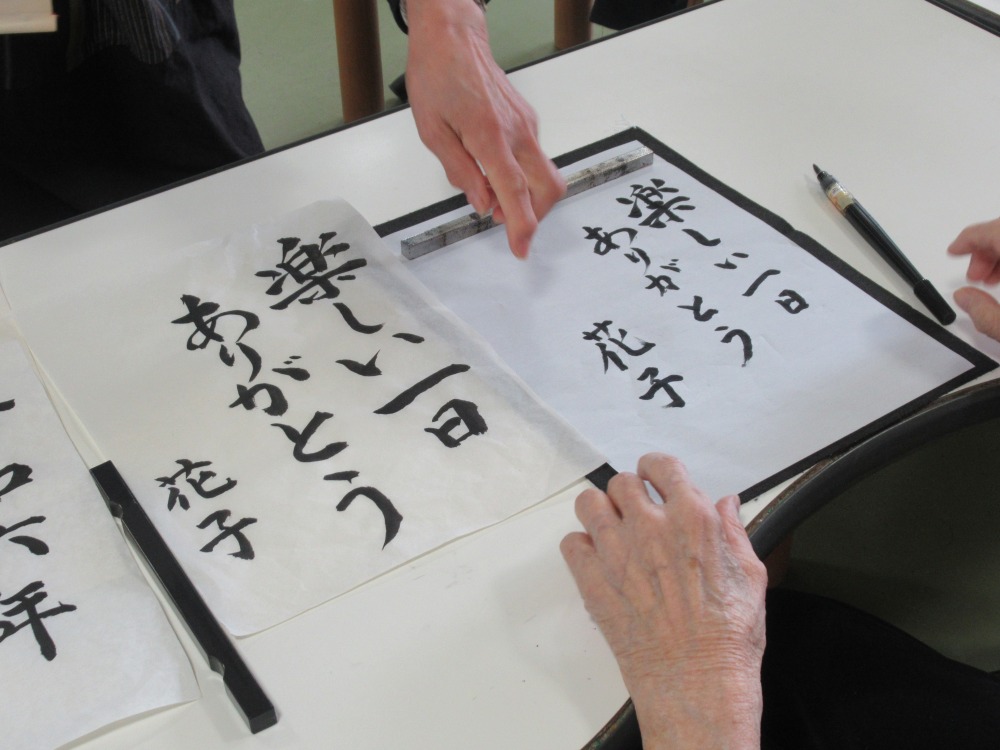 楽しい一日
ありがとう
花子
楽しい一日
ありがとう
花子
六年